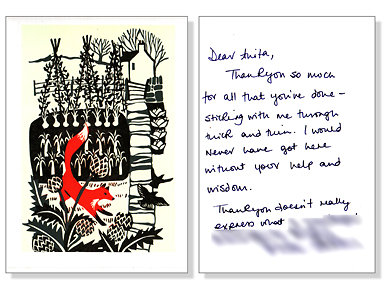 Dear Anita,
Thankyou so much
for all that you've done –
sticking with me through
thick and thin. I would
never have got here
without your help and
wisdom.
Thankyou doesn't really
express what